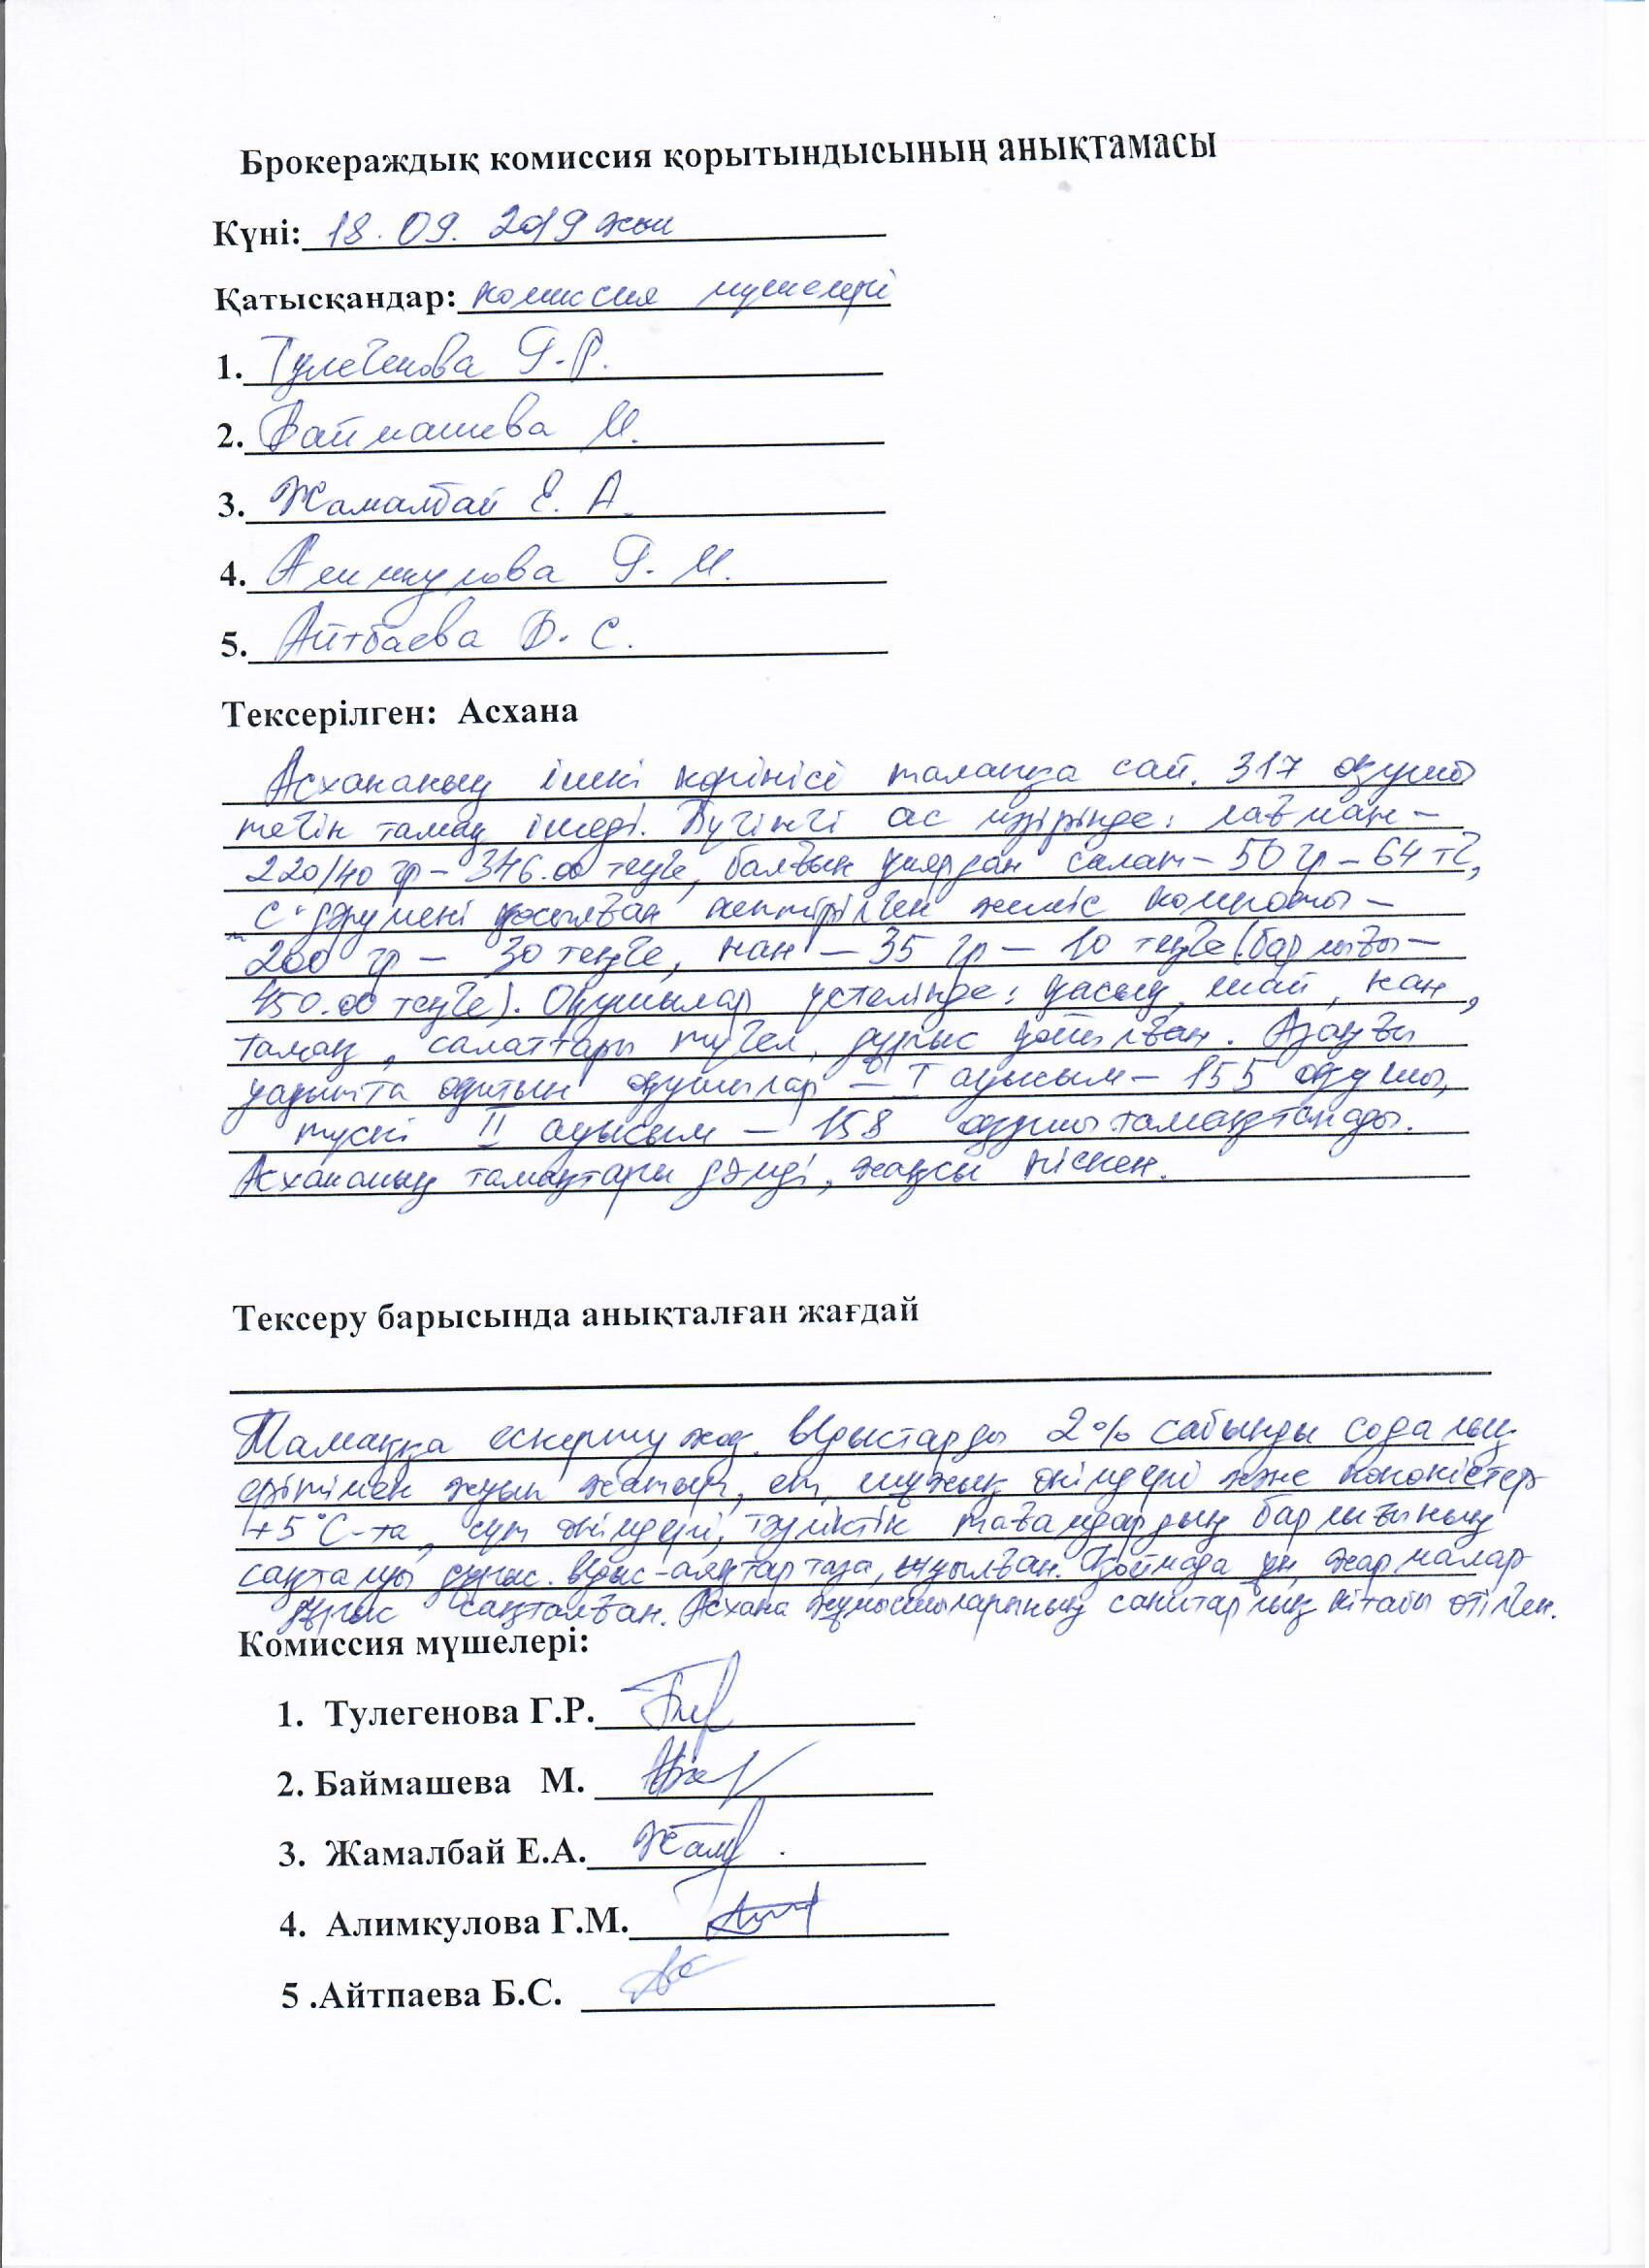 Брокераждық комиссия қорытындысының анықтамасы
Күні: 18.09.2019 жыл
Қатысқандар: комиссия мүшелері
1. Тулегенова Г.Р.
2. Баймашева М.
3. Жамалбай Е. А.
4. Алимкулова Г. М.
5. Айтбаева Б. С.
Тексерілген: Асхана
Асхананың ішкі көрінісі талапқа сай. 317 оқушы
тегін тамақ ішеді. Бүгінгі ас мәзірінде: лағман –
220/40 гр – 346.00 теңге, балғын қиярдан салат – 50 гр – 64 тг,
"С" дәрумені қосылған кептірілген жеміс компоты –
200 гр – 30 теңге, нан – 35 гр – 10 теңге (барлығы –
450.00 теңге). Оқушылар үстелінде: қасық, шай, нан,
тамақ, салаттары түгел, дұрыс қойылған. Азаңғы
уақытта оқитын оқушылар – I ауысым – 155 оқушы,
түскі II ауысым – 158 оқушы тамақтанады.
Асхананың тамақтары дәмді, жақсы піскен.
Тексеру барысында анықталған жағдай
Тамаққа ескерту жоқ. Ыдыстарды 2% сабынды содалық
ерітімен жуып жатыр, ет, шұжық өнімдері және көкөністер
+5°С-та, сүт өнімдері, тәуліктік тағамдардың барлығының
сақталуы дұрыс. Ыдыс-аяқтар таза, жуылған. Қоймада ұн, жармалар
дұрыс сақталған. Асхана жұмысшыларының санитарлық кітабы өтілген.
Комиссия мүшелері:
1. Тулегенова Г.Р.
2. Баймашева М.
3. Жамалбай Е.А.
4. Алимкулова Г.М.
5 .Айтпаева Б.С.